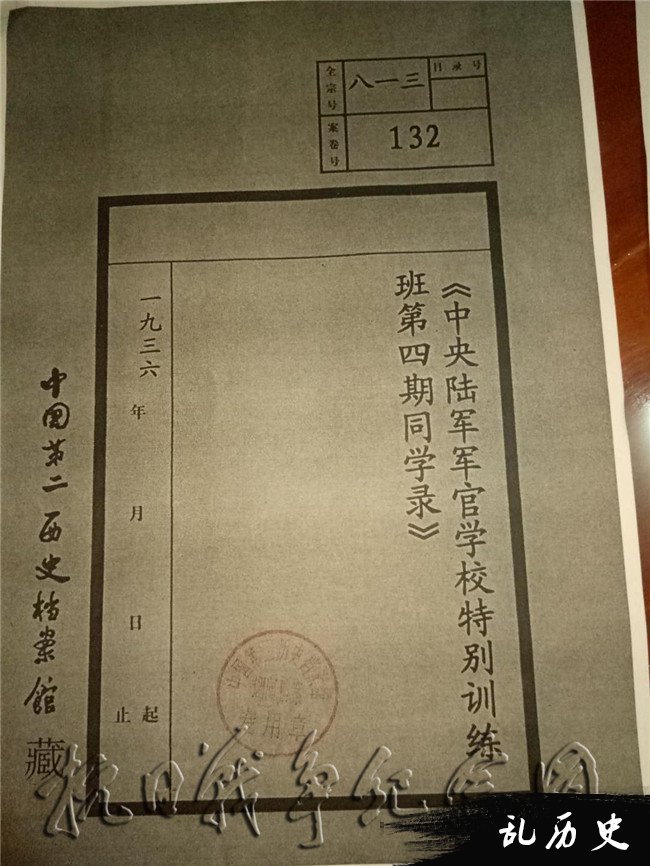 全宗号
八一三
目录号
案卷号
132
《中央陆军军官学校特别训练
班第四期同学录》
一九三六年 月 日
起
止
中国第二历史档案馆 藏
专用章
抗日战争纪念网
乱历史